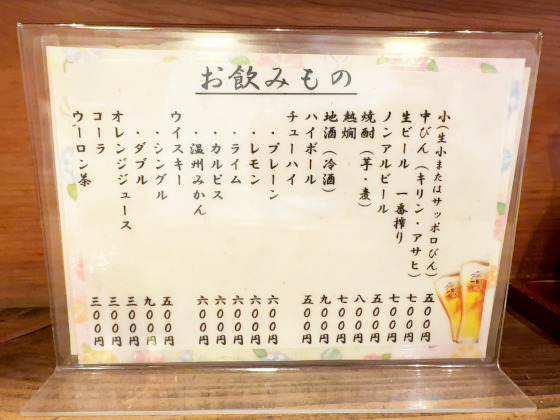 お飲みもの
小(生小またはサッポロびん) 五〇〇円
中びん(キリン・アサヒ) 七〇〇円
生ビール 一番搾り 七〇〇円
ノンアルビール 五〇〇円
焼酎(芋・麦) 八〇〇円
熱燗 七〇〇円
地酒(冷酒) 九〇〇円
ハイボール 五〇〇円
チューハイ
・プレーン 六〇〇円
・レモン 六〇〇円
・ライム 六〇〇円
・カルピス 六〇〇円
・温州みかん 六〇〇円
ウイスキー
・シングル 五〇〇円
・ダブル 九〇〇円
オレンジジュース 三〇〇円
コーラ 三〇〇円
ウーロン茶 三〇〇円